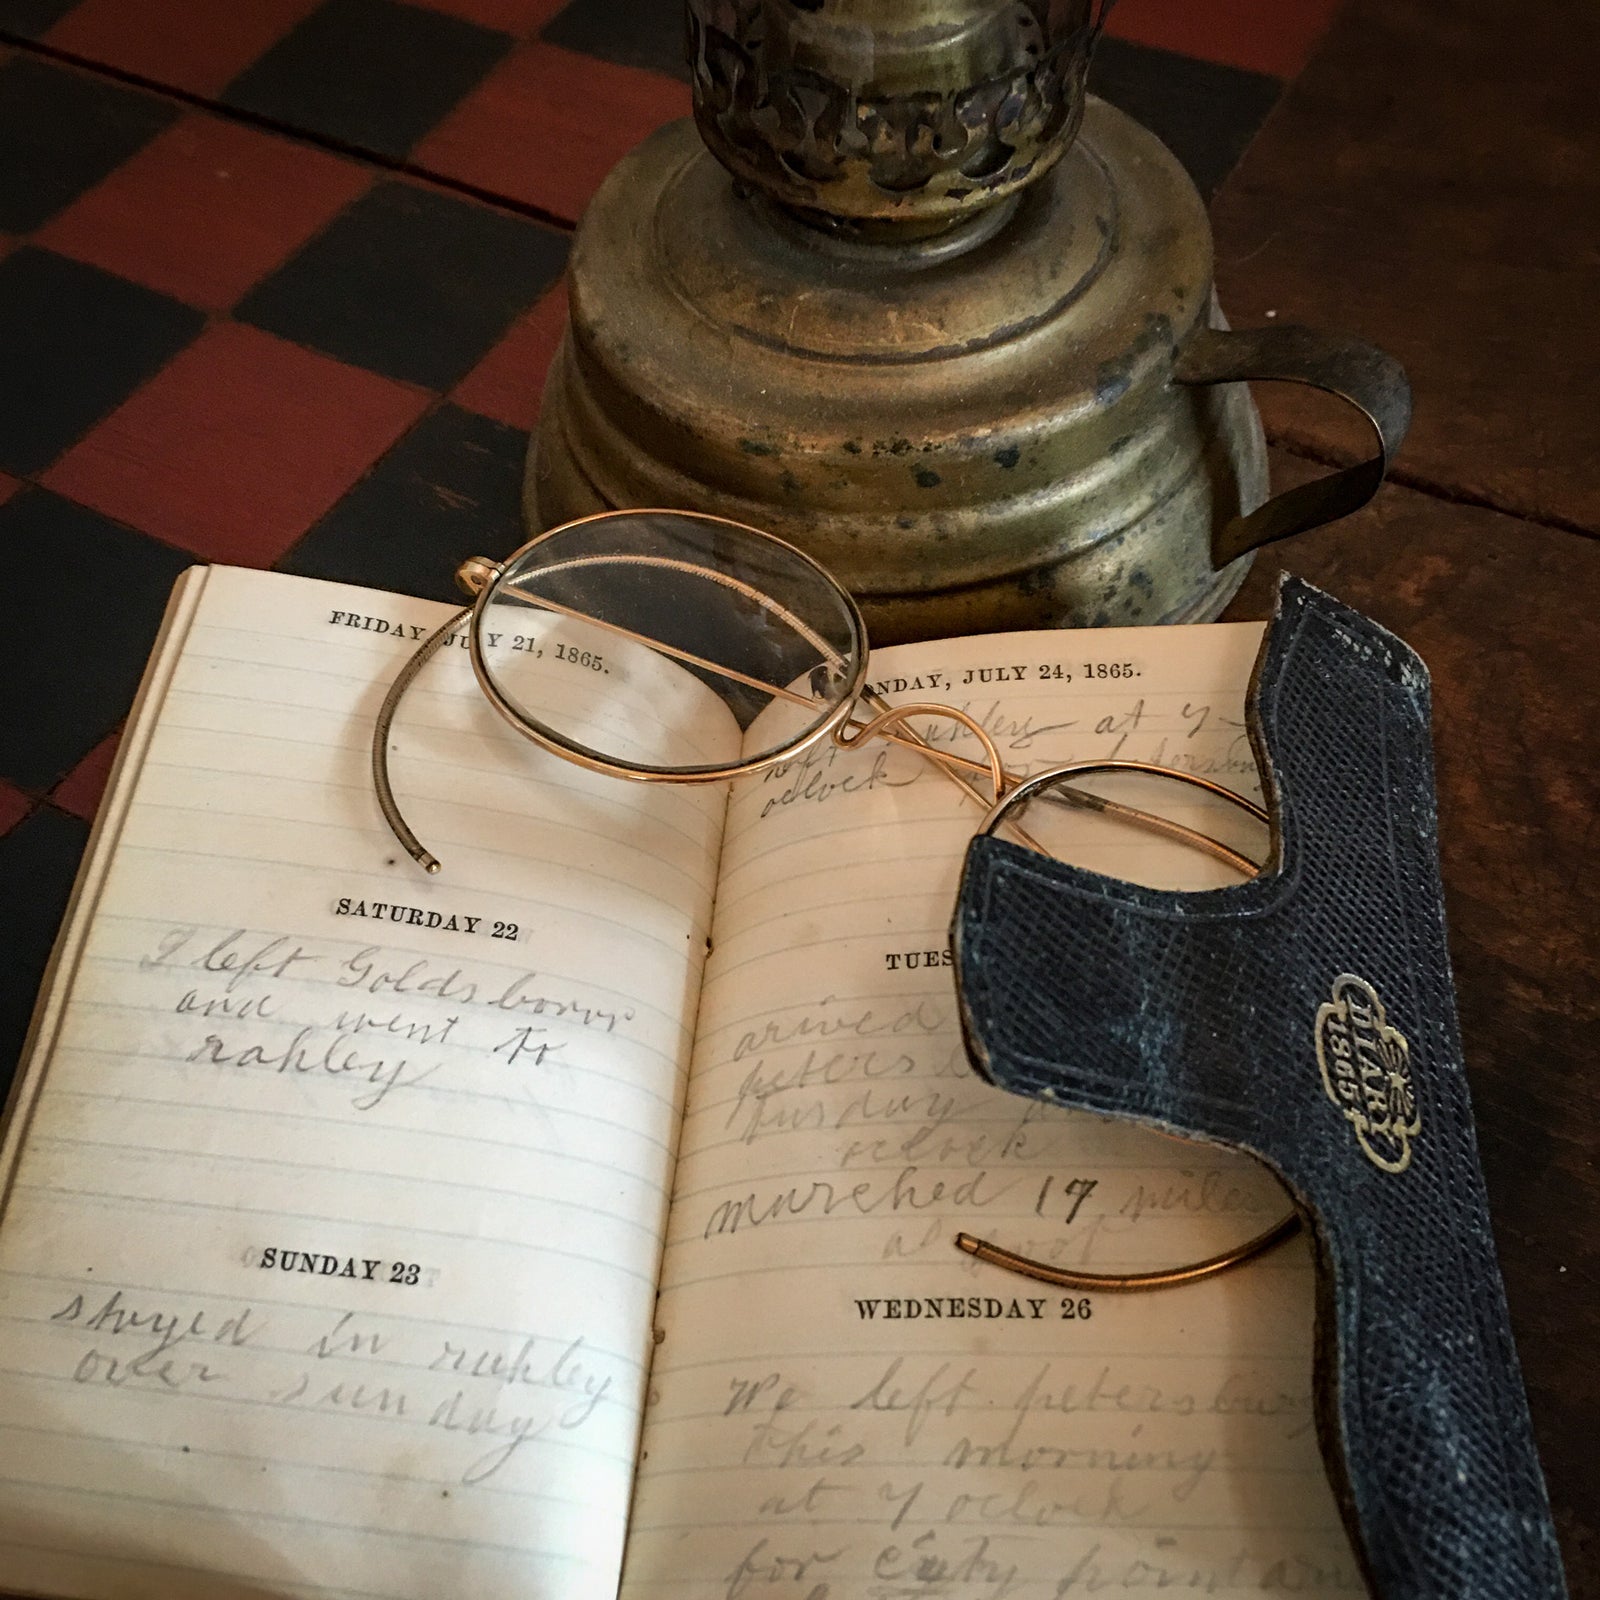 FRIDAY, JULY 21, 1865.
SATURDAY 22
I left Goldsborro
and went to
rahley
SUNDAY 23
stayed in rahley
over sunday
NDAY, JULY 24, 1865.
left rahley at 7
oclock for petersbu
TUES
arived
peters
tusday
oclock
marched 17 miles
WEDNESDAY 26
We left petersburg
this morning
at 7 oclock
for City point
DIARY
1865